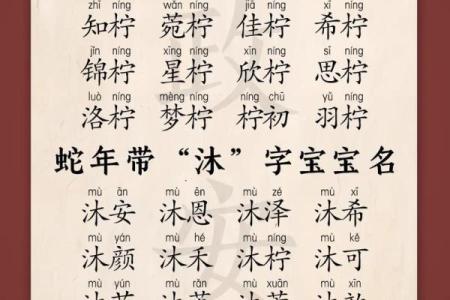 zhī níng wǎn níng jiā níng xī níng
知柠 菀柠 佳柠 希柠
jǐn níng xīng níng xīn níng sī níng
锦柠 星柠 欣柠 思柠
luò níng mèng níng níng chū yǔ níng
洛柠 梦柠 柠初 羽柠
蛇年带“沐”字宝宝名
mù ān mù ēn mù zé mù xī
沐安 沐恩 沐泽 沐希
mù yán mù hé mù níng mù kě
沐颜 沐禾 沐柠 沐可
mù mù rǎn mù xuān mù